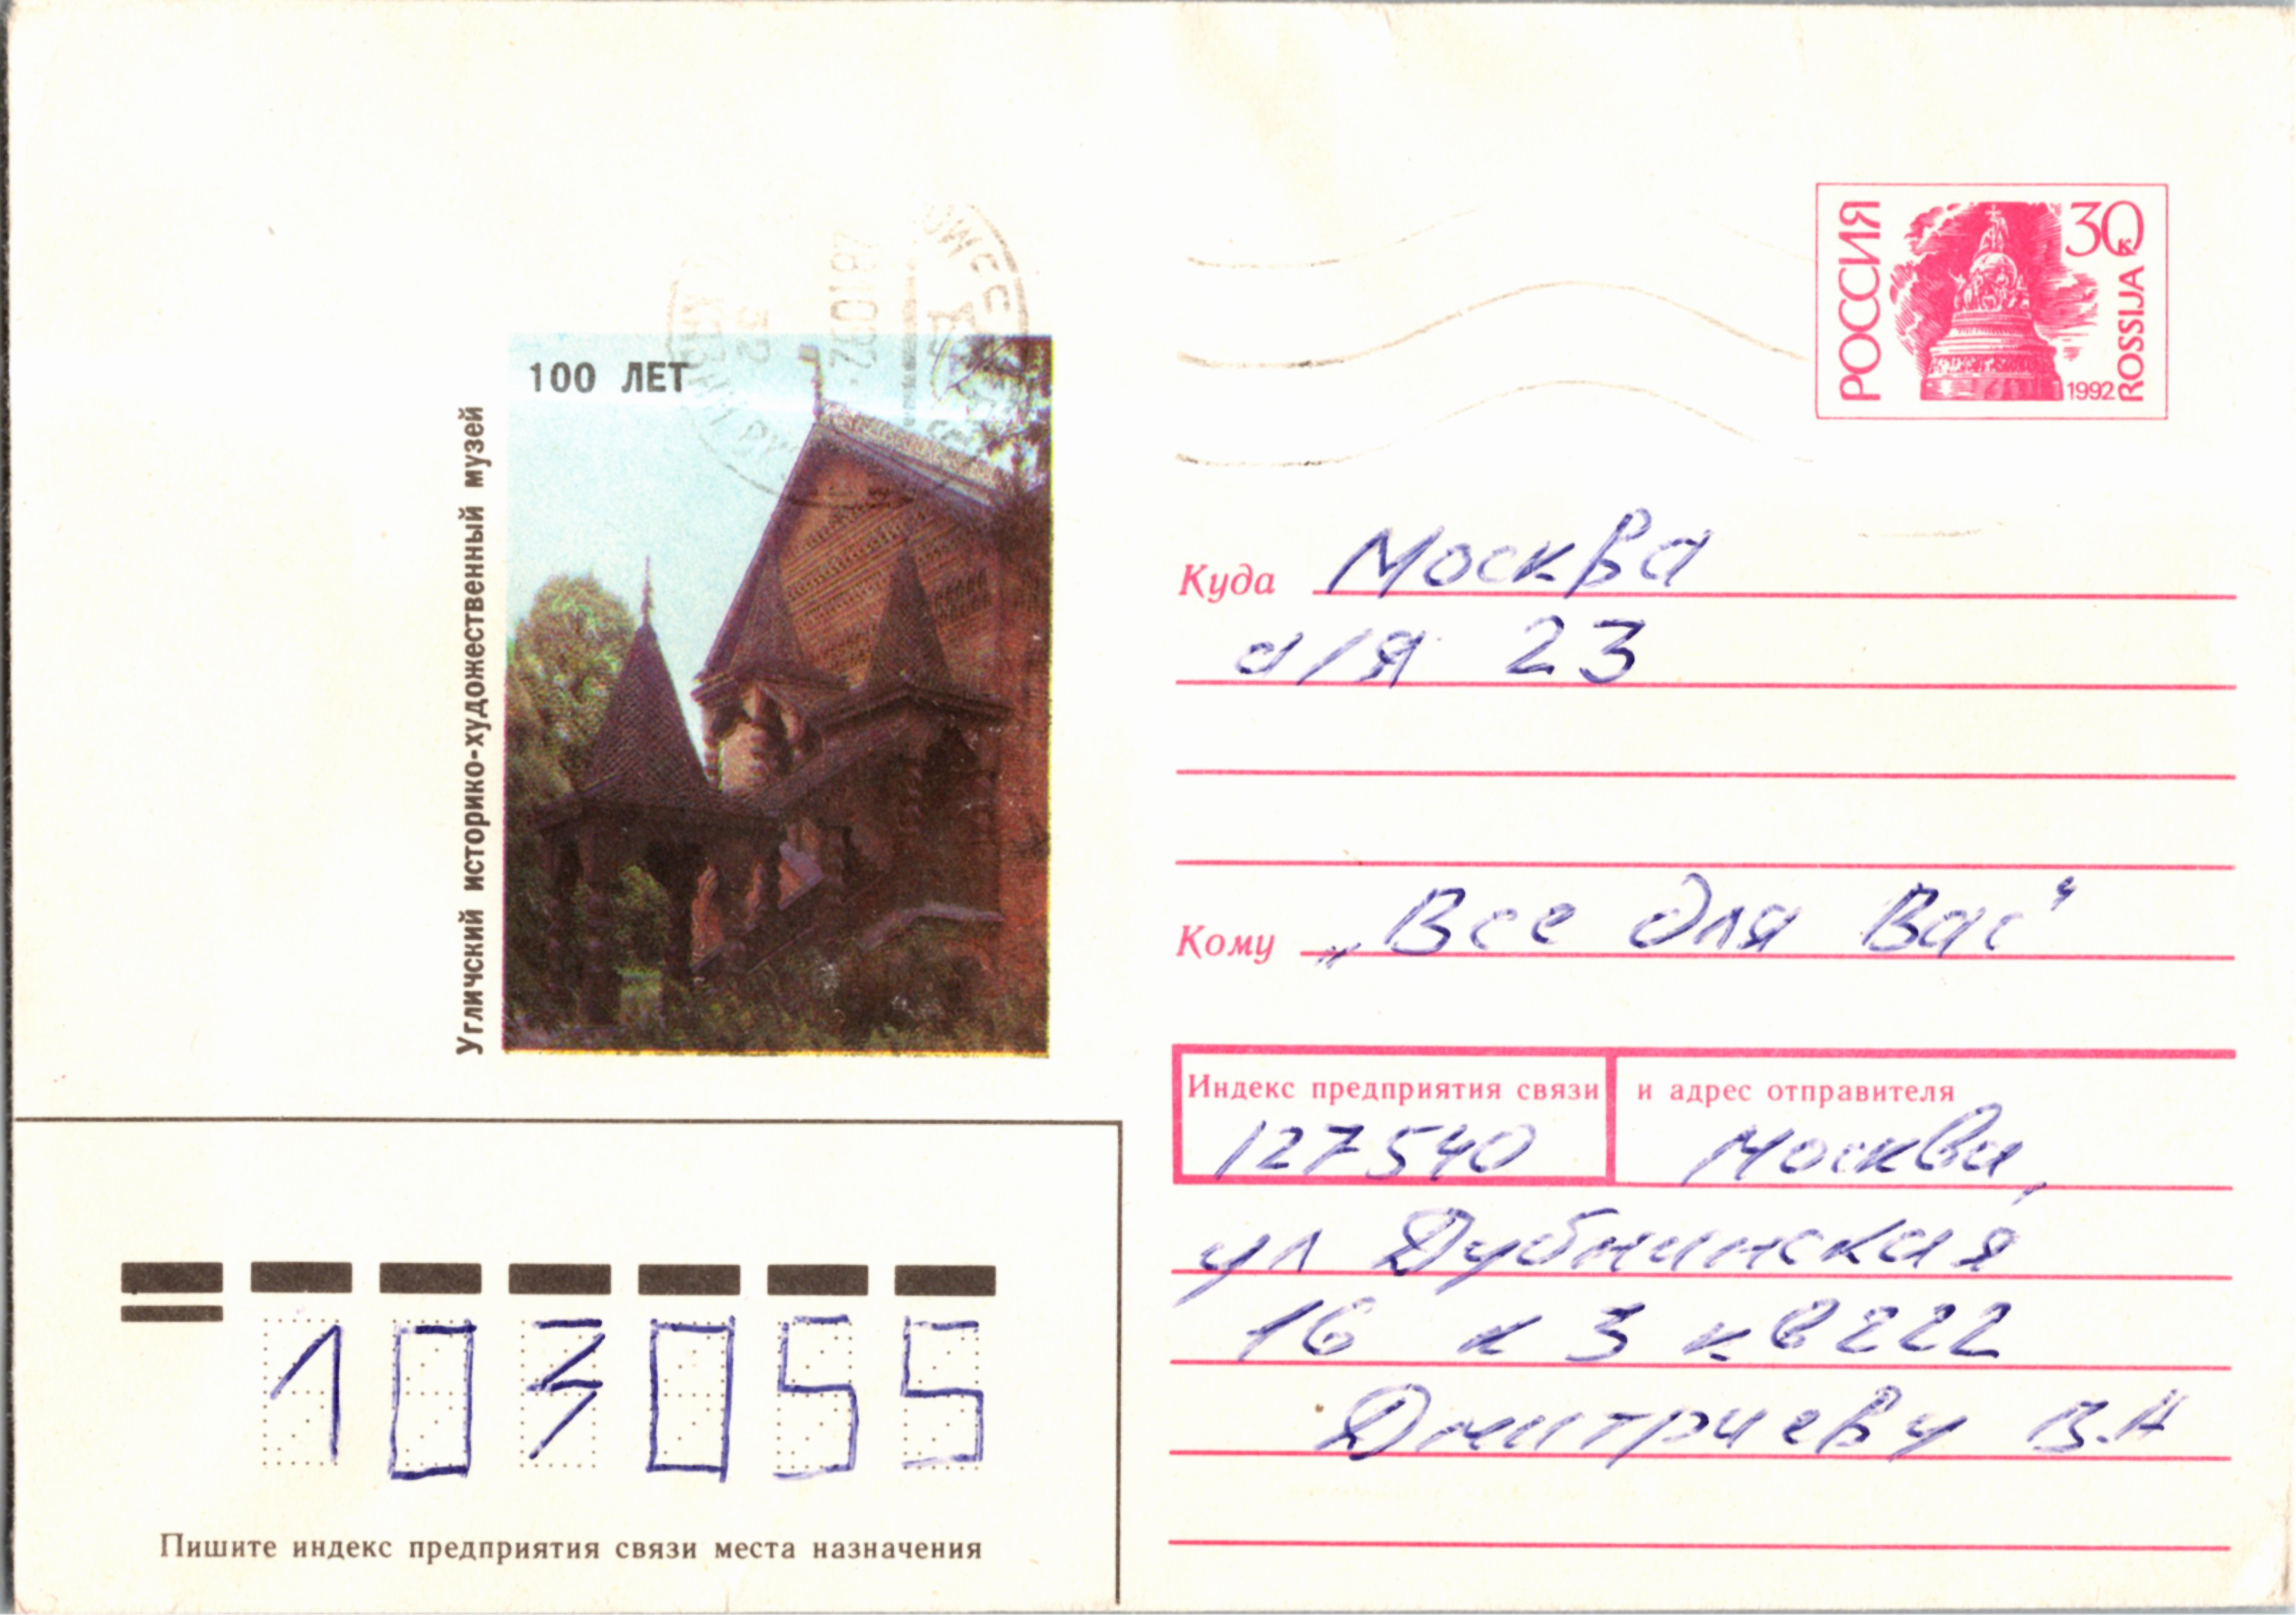 РОССИЯ
30
к
ROSSIJA
1992
100 ЛЕТ
Угличский историко-художественный музей
Куда Москва
а/я 23
Кому „Все для Вас“
Индекс предприятия связи и адрес отправителя
127540 Москва,
ул Дубнинская
16 к 3 кв 222
Дмитриеву В.А
103055
Пишите индекс предприятия связи места назначения